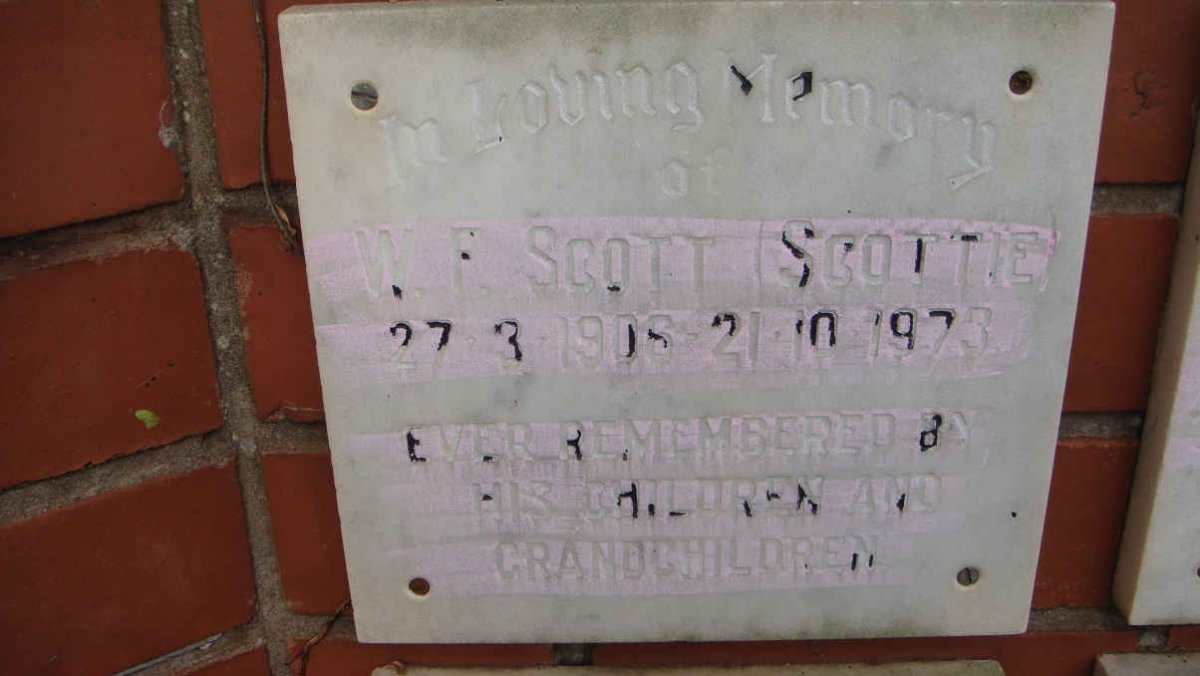 In Loving Memory
of
W. F. SCOTT (SCOTTIE)
27·3·1906-21·10·1973
EVER REMEMBERED BY
HIS CHILDREN AND
GRANDCHILDREN